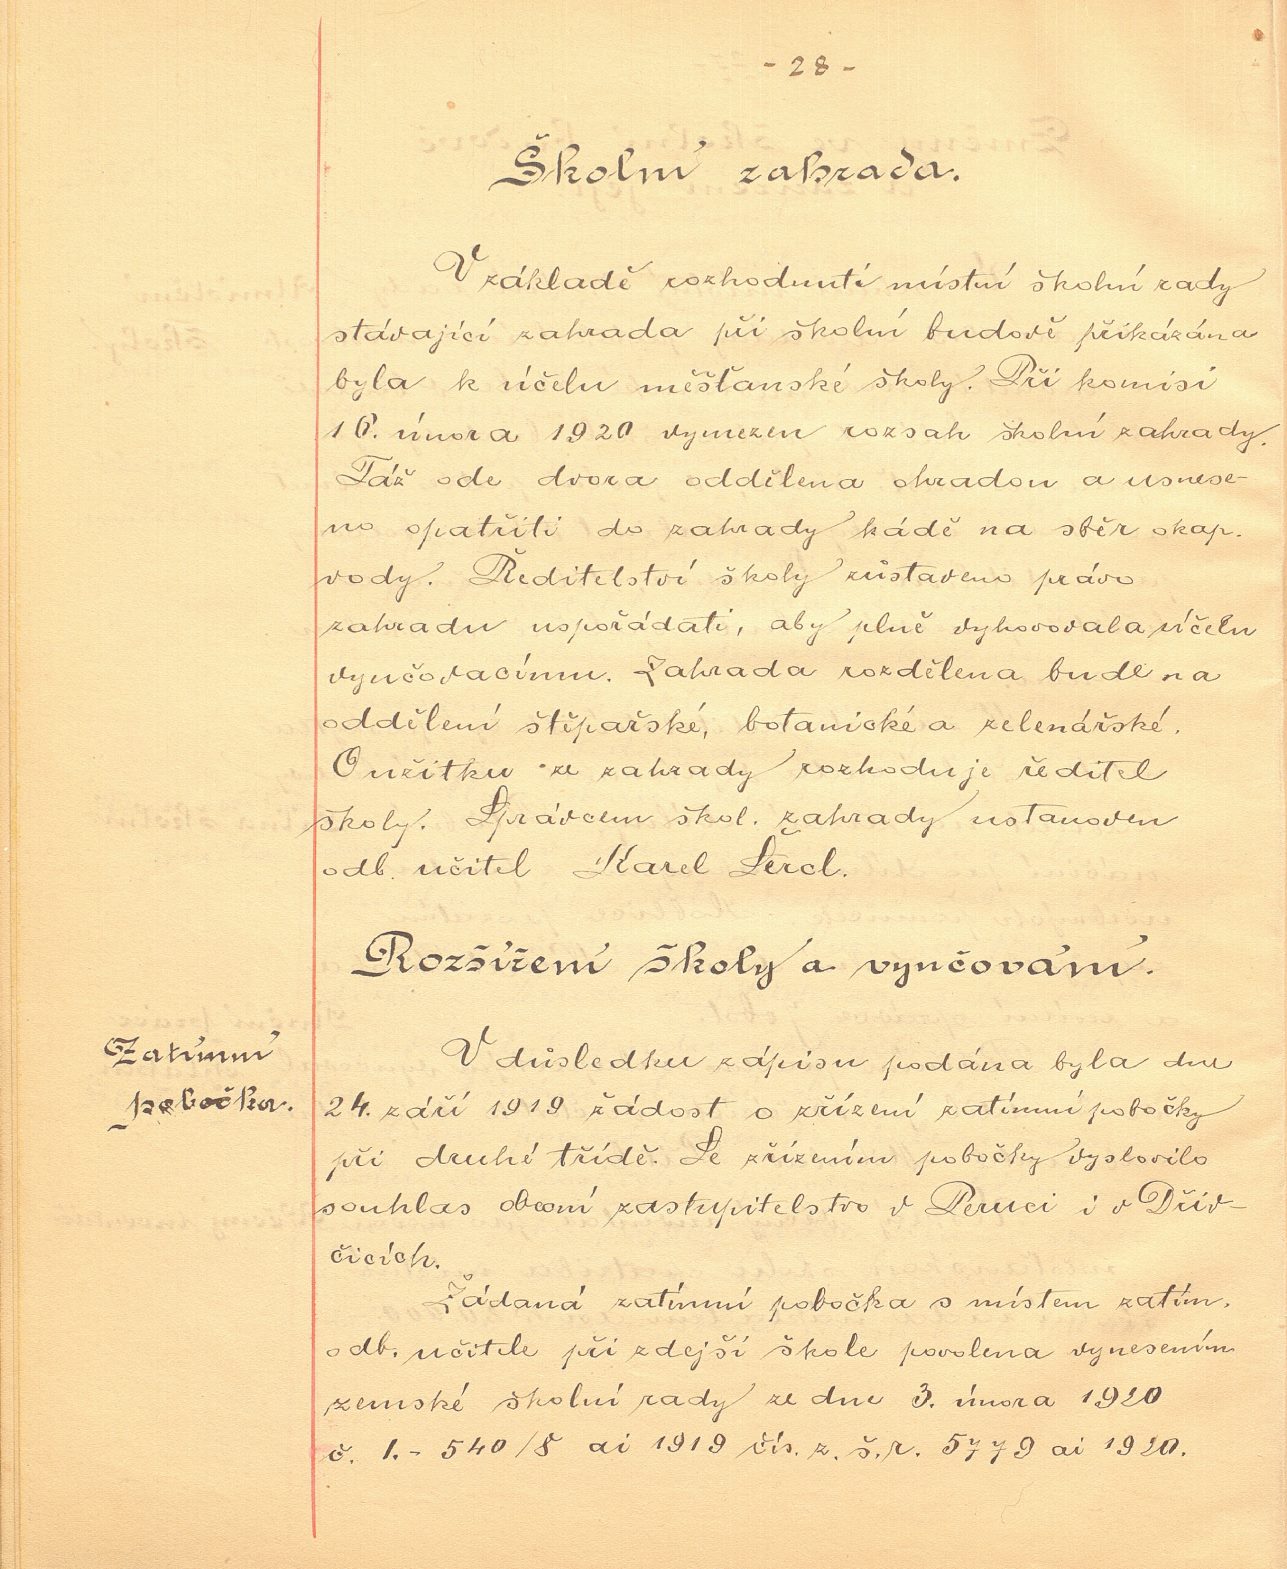 - 28 -
Školní zahrada.
V základě rozhodnutí místní školní rady
stávající zahrada při školní budově přikázána
byla k účelu měšťanské školy. Při komisi
16. února 1920 vymezen rozsah školní zahrady.
Táž ode dvora oddělena ohradou a usnese-
no opatřiti do zahrady kádě na sběr okap.
vody. Ředitelství školy zůstaveno právo
zahradu uspořádati, aby plně vyhovovala účelu
vyučovacímu. Zahrada rozdělena bude na
oddělení štěpařské, botanické a zelenářské.
O užitku ze zahrady rozhoduje ředitel
školy. Správcem škol. zahrady ustanoven
odb. učitel Karel Šercl.
Rozšíření školy a vyučování.
Zatímní
pobočka.
V důsledku zápisu podána byla dne
24. září 1919 žádost o zřízení zatímní pobočky
při druhé třídě. Se zřízením pobočky vyslovilo
souhlas obecní zastupitelstvo v Peruci i v Dřív-
čicích.
Žádaná zatímní pobočka s místem zatím.
odb. učitele při zdejší škole povolena vynesením
zemské školní rady ze dne 3. února 1920
č. I. - 540/8 ai 1919 čís. z. š. r. 5779 ai 1920.